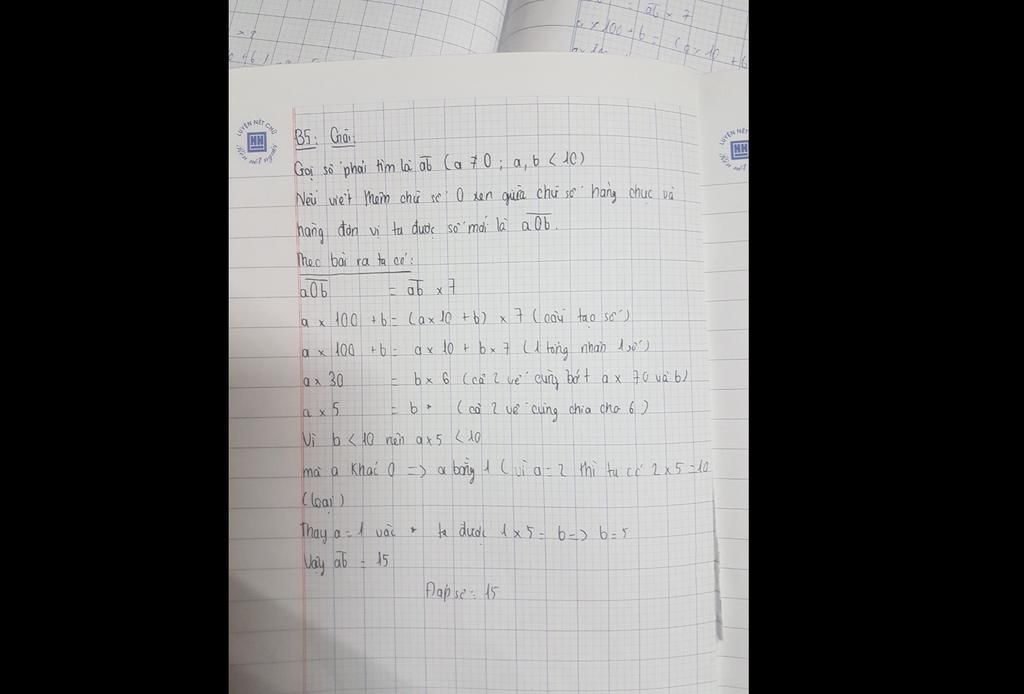 ab × 7
a × 100 + b = (a × 10 + b
LUYỆN NÉT CHỮ
HN
Rèn nết người
LUYỆN NÉT
HN
B5: Giải:
Gọi số phải tìm là ab (a ≠ 0 ; a, b < 10)
Nếu viết thêm chữ số 0 xen giữa chữ số hàng chục và
hàng đơn vị ta được số mới là a0b.
Theo bài ra ta có:
a0b = ab × 7
a × 100 + b = (a × 10 + b) × 7 (cấu tạo số)
a × 100 + b = a × 10 + b × 7 (1 tổng nhân 1 số)
a × 30 = b × 6 (cả 2 vế cùng bớt a × 70 và b)
a × 5 = b * (cả 2 vế cùng chia cho 6)
Vì b < 10 nên a × 5 < 10
mà a khác 0 => a bằng 1 (vì a = 2 thì ta có 2 × 5 = 10
(loại)
Thay a = 1 vào * ta được 1 × 5 = b => b = 5
Vậy ab = 15
Đáp số: 15